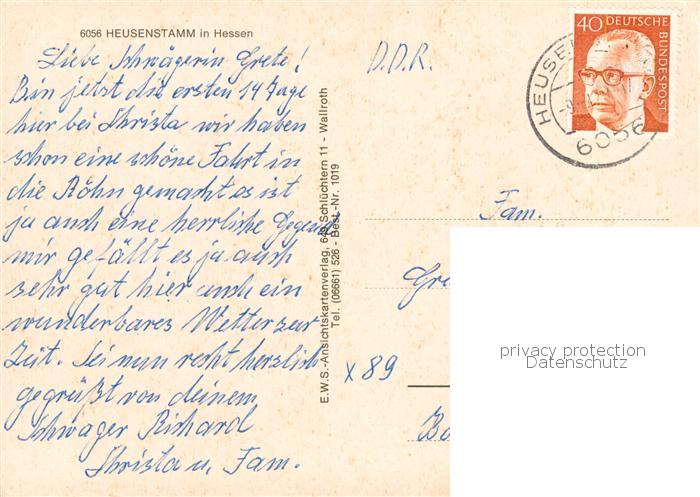 6056 HEUSENSTAMM in Hessen
Liebe Schwägerin Grete!
Bin jetzt die ersten 14 Tage
hier bei Christa wir haben
schon eine schöne Fahrt in
die Röhn gemacht es ist
ja auch eine herrliche Gegend
mir gefällt es ja auch
sehr gut hier auch ein
wunderbares Wetter zur
Zeit. Sei nun recht herzlich
gegrüßt von deinem
Schwager Richard
Christa u. Fam.
E.W.S.-Ansichtskartenverlag, 649 Schlüchtern 11 - Wallroth
Tel. (06661) 526 - Best.-Nr. 1019
D.D.R.
40 DEUTSCHE
BUNDESPOST
HEUSE
6056
Fam.
Gre
x 89
Ba
privacy protection
Datenschutz